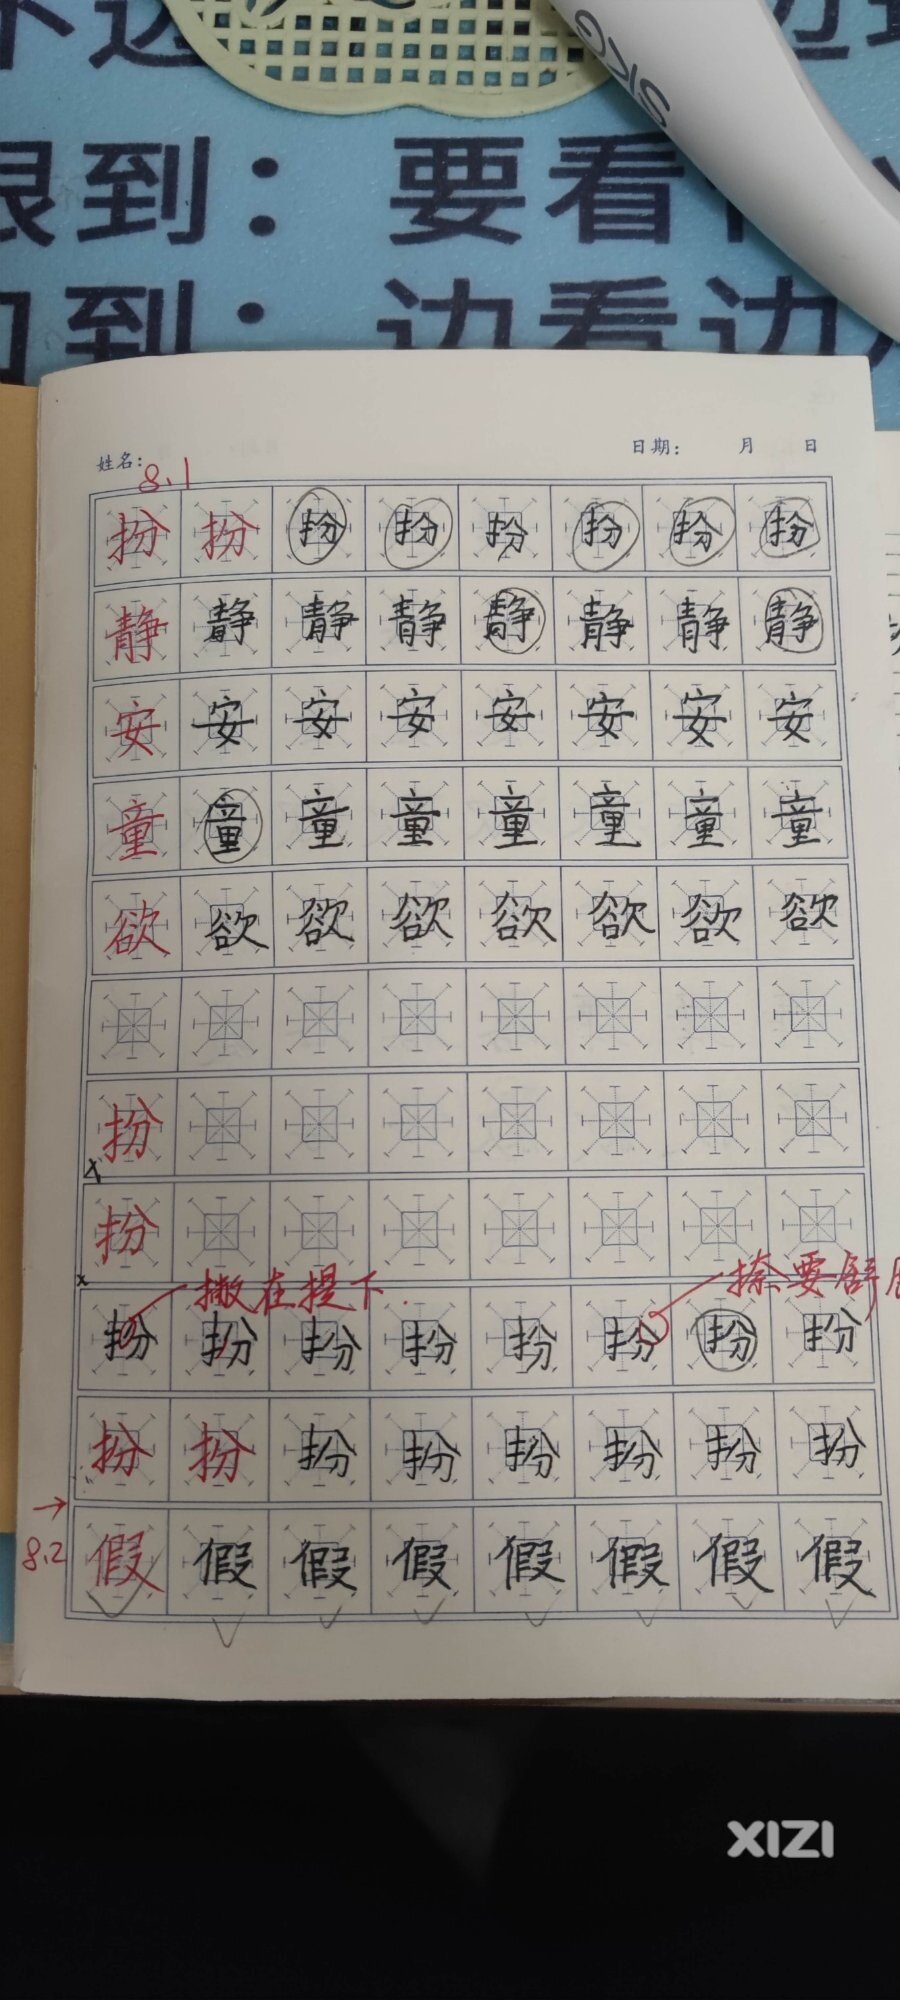 SKG
眼到：要看
到：边看边
姓名： 日期： 月 日
8.1
扮 扮 扮 扮 扮 扮 扮 扮
静 静 静 静 静 静 静 静
安 安 安 安 安 安 安 安
童 童 童 童 童 童 童 童
欲 欲 欲 欲 欲 欲 欲 欲
扮
扮
撇在提下. 捺要舒
扮 扮 扮 扮 扮 扮 扮 扮
扮 扮 扮 扮 扮 扮 扮 扮
8.2
假 假 假 假 假 假 假 假
XIZI